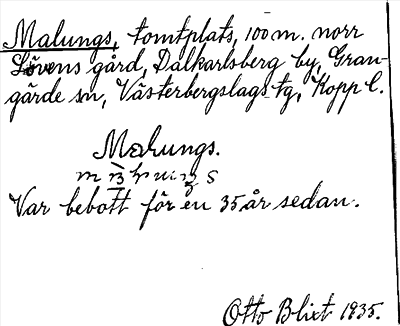 Malungs, tomtplats, 100 m. norr
Lövens gård, Dalkarlsberg by, Gran-
gärde sn, Västerbergslags tg, Kopp l.
Malungs.
Var bebott för en 35 år sedan.
Otto Blixt 1935.